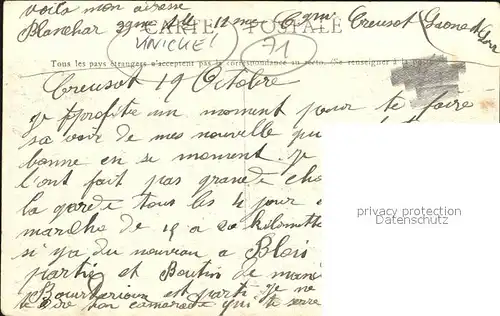 voila mon adresse
Blanchar 29me 11me Cgnie Creusot Saone et Loir
CARTE POSTALE
UNICHEL 71
Tous les pays étrangers n'acceptent pas la correspondance au recto. (Se renseigner à la poste)
Creusot 19 Octobre
je profite un moment pour te faire
sa voir de mes nouvelle qui
bonne en se moment. Je
l'ont fait pas grande cho
la garde tous les 4 jour
marche de 15 a 20 kilomette
si ya du nouveau a Blois
partie et Boutin de
Bourderioux est parti je ne
te dire ton camarade qui te serre
privacy protection
Datenschutz